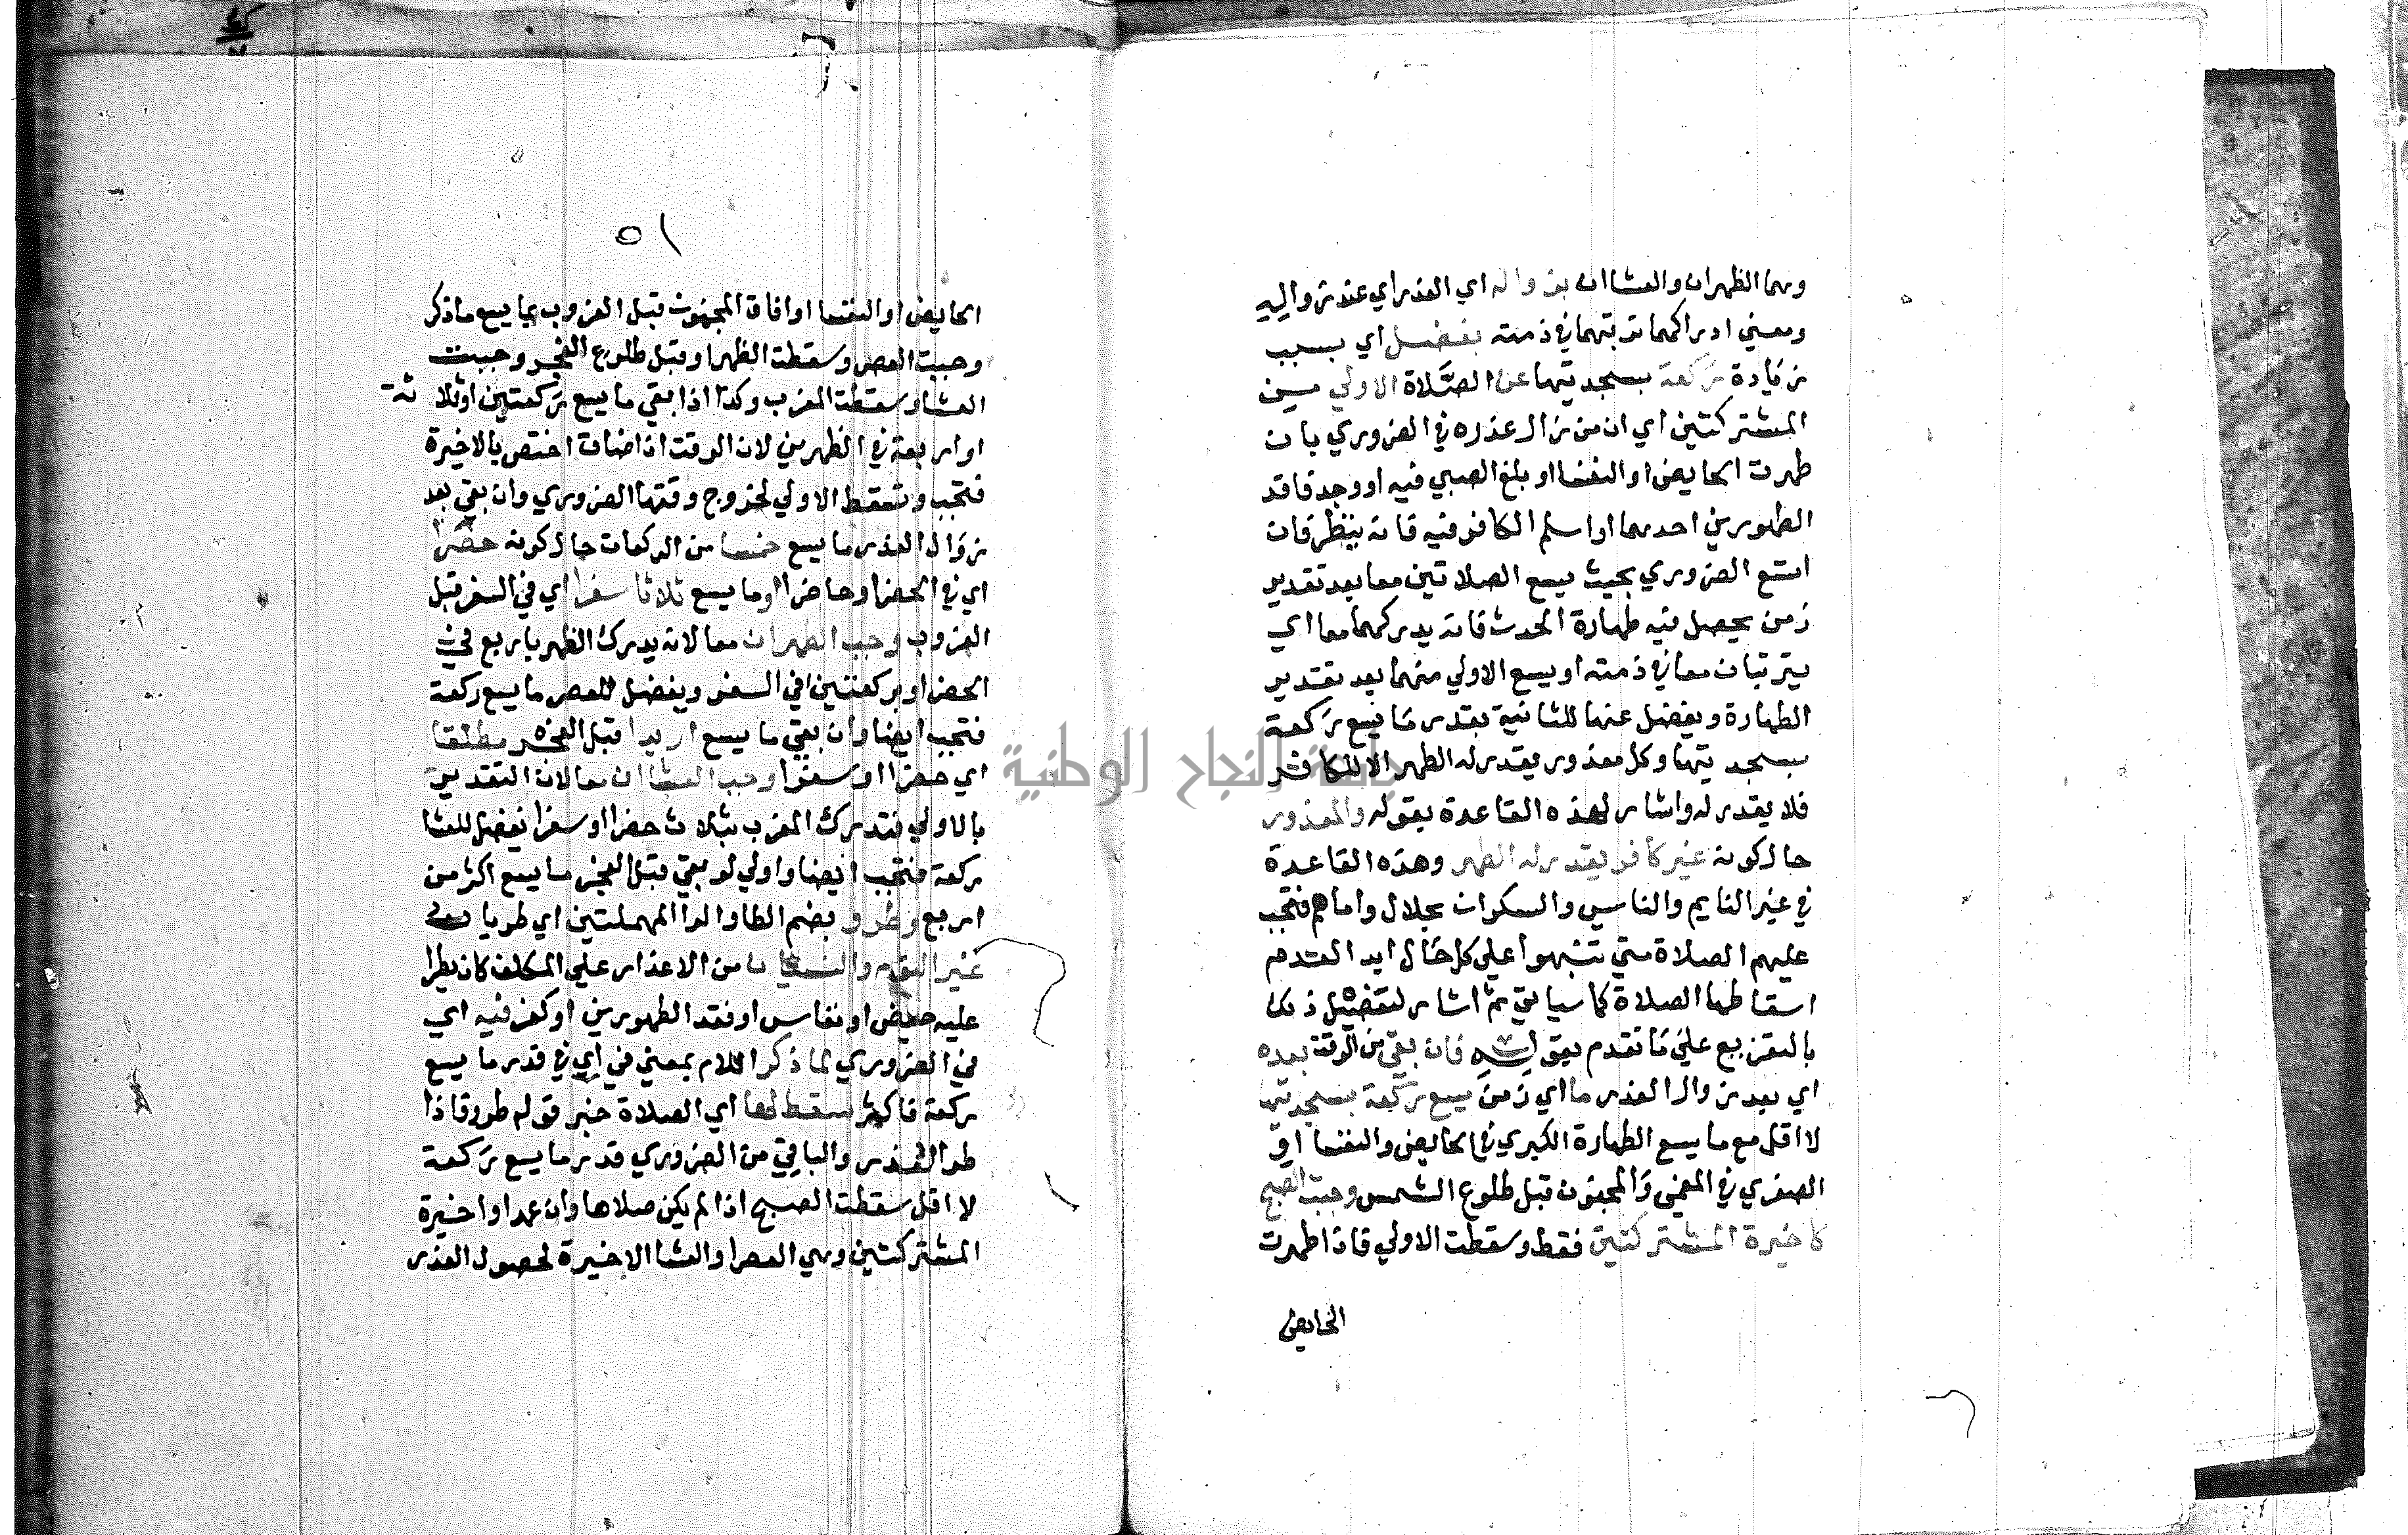 وهما الظهران والعشاان بزواله اي العذر اي عند زواله
ومعني ادراكهما ترتبهما في ذمته بفضل اي بسبب
زيادة ركعة بسجدتيها عن الصلاة الاولي من
المشتركتين اي ان من زال عذره في الضروري بان
طهرت الحايض او النفسا او بلغ الصبي فيه او وجد فاقد
الطهورين احدهما او اسلم الكافر فيه فانه ينظر فان
اتسع الضروري بحيث يسع الصلاتين معا بعد تقدير
زمن يحصل فيه طهارة الحدث فانه يدركهما معا اي
يترتبان معا في ذمته او يسع الاولي منهما بعد تقدير
الطهارة ويفضل عنها للثانية بقدر ما يسع ركعة
بسجدتيها وكل معذور يقدر له الطهر الا الكافر
فلا يقدر له واشار لهذه القاعدة بقوله والمعذور
حال كونه غير كافر يقدر له الطهر وهذه القاعدة
في غير النايم والناسي والسكران بحلال واما هم فتجب
عليهم الصلاة متي تنبهوا علي كل حال ابدا لعدم
اسقاطها الصلاة كما سياتي ثم اشار لتفصيل ذلك
بالتفريع علي ما تقدم بقوله فان بقي من الوقت بعده
اي بعد زوال العذر ما اي زمن يسع ركعة بسجدتيها
لا اقل مع ما يسع الطهارة الكبري في الحايض والنفسا او
الصغري في المغمي والمجنون قبل طلوع الشمس وجبت الصبح
كاخيرة المشتركتين فقط وسقطت الاولي فاذا طهرت
الحايض
٥١
الحايض او النفسا او افاق المجنون قبل الغروب بما يسع ما ذكر
وجبت العصر وسقطت الظهر او قبل طلوع الفجر وجبت
العشا وسقطت المغرب وكذا اذا بقي ما يسع ركعتين او ثلاثة
او اربعة في الظهرين لان الوقت اذا ضاق اختص بالاخيرة
فتجب وتسقط الاولي لخروج وقتها الضروري وان بقي بعد
زوال العذر ما يسع خمسا من الركعات حال كونه حضرا
اي في الحضر او حاضرا او ما يسع ثلاثا سفرا اي في السفر قبل
الغروب وجب الظهران معا لانه يدرك الظهر باربع في
الحضر او بركعتين في السفر ويفضل للعصر ما يسع ركعة
فتجب ايضا وان بقي ما يسع اربعا قبل الفجر مطلقا
اي حضرا او سفرا وجب العشاان معا لان التقدير
بالاولي فتدرك المغرب بثلاث حضرا او سفرا تفضل للعشا
ركعة فتجب ايضا واولي لو بقي قبل الفجر ما يسع اكثر من
اربع وطرو بضم الطا والرا المهملتين اي طريان
غير النوم والنسيان من الاعذار علي المكلف كان يطرا
عليه حيض او نفاس او فقد الطهورين او كفر فيه اي
في الضروري لما ذكر اللام بمعني في اي في قدر ما يسع
ركعة فاكثر مسقط لها اي الصلاة خبر قوله طرو فاذا
طرا العذر والباقي من الضروري قدر ما يسع ركعة
لا اقل سقطت الصبح اذا لم يكن صلاها وان عمدا واخيرة
المشتركتين وهي العصر او العشا الاخيرة لحصول العذر